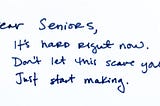 ear Seniors,
It's hard right now.
Don't let this scare you
Just start making.